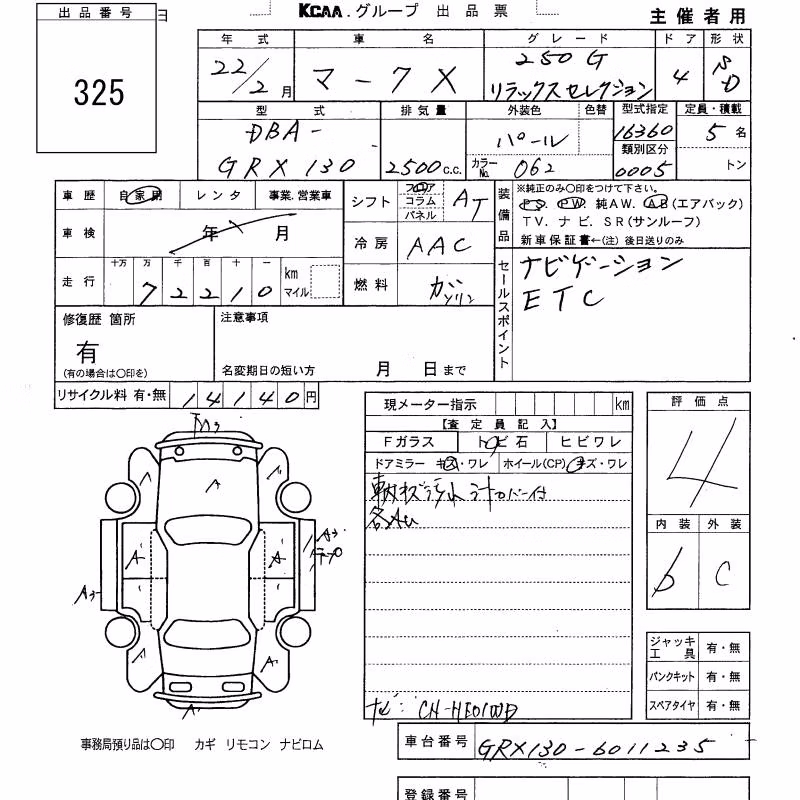 出品番号
日
KCAA.グループ 出品票
主催者用
325
年式 車名 グレード ドア 形状
22/2月 マークX 250G リラックスセレクション 4 SD
型式 排気量 外装色 色替 型式指定 定員・積載
DBA- パール 16360 5名
類別区分
GRX130 2500c.c. カラーNo. 062 0005 トン
車歴 自家用 レンタ 事業.営業車
シフト フロア コラム パネル AT
装備品 ※純正のみ〇印をつけて下さい。
PS. PW. 純AW. AB(エアバック)
TV. ナビ. SR(サンルーフ)
新車保証書←(注)後日送りのみ
車検 年 月
冷房 AAC
走行 十万 万 千 百 十 一
72210 km マイル
燃料 ガソリン
セールスポイント ナビゲーション
ETC
修復歴 箇所
有
(有の場合は〇印を)
注意事項
名変期日の短い方 月 日まで
リサイクル料 有・無 14140円
現メーター指示 km
【査定員記入】
Fガラス トビ石 ヒビワレ
ドアミラー キズ・ワレ ホイール(CP) キズ・ワレ
車内キズ汚れ 汁カバー付
各AU
ナビ:CH-HE01WD
評価点
4
内装 外装
b C
ジャッキ工具 有・無
パンクキット 有・無
スペアタイヤ 有・無
A
A
A
A3
A3
A
A
A
事務局預り品は〇印 カギ リモコン ナビロム
車台番号 GRX130-6011235
登録番号